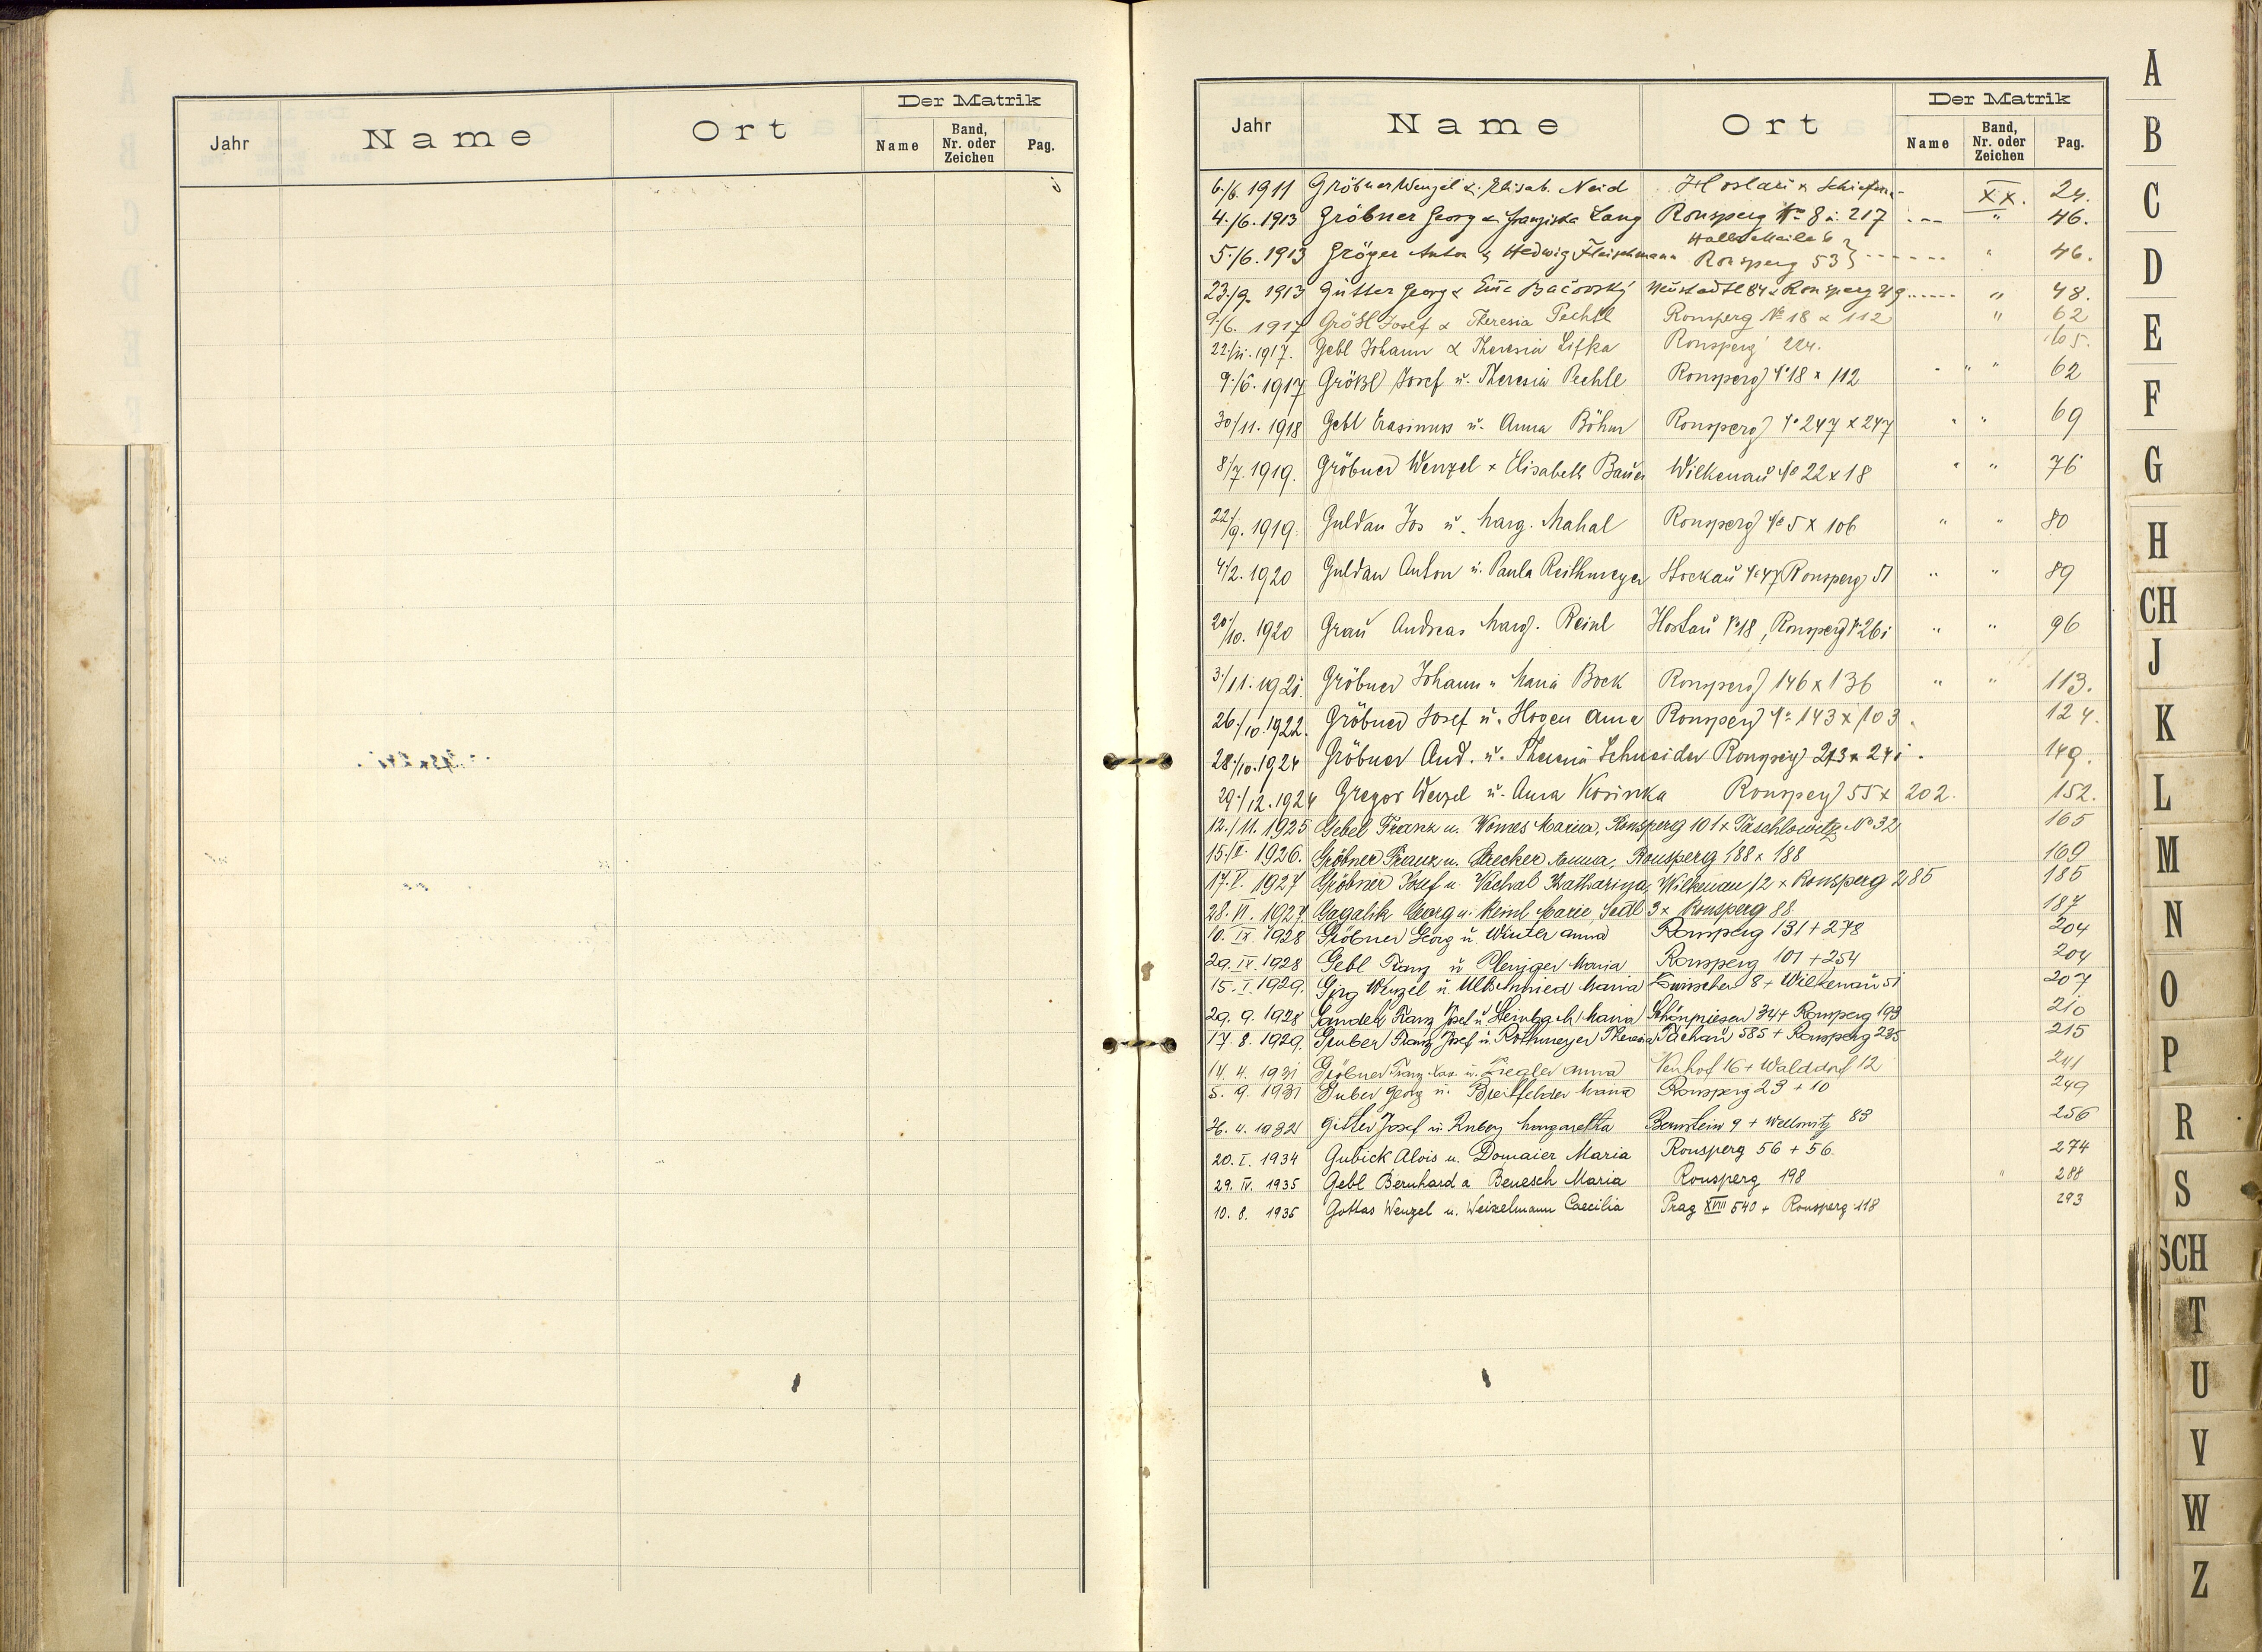 Jahr Name Ort Der Matrik
Name Band, Nr. oder Zeichen Pag.
Jahr Name Ort Der Matrik
Name Band, Nr. oder Zeichen Pag.
6./6. 1911 Gröbner Wenzel u. Elisab. Neid XX. 24.
4./6. 1913 Gröbner Georg u. Franziska Lang Ronsperg No 8 u. 217 " 46.
5./6. 1913 Gröger Anton u. Hedwig Fleischmann Ronsperg 53 " 46.
23./9. 1913 Gütter Georg & Bačovský Neustadtl 84 & Ronsperg " 48.
9./6. 1917 Größl Josef & Theresia Pechtl Ronsperg No 18 & 112 " 62
22./11. 1917. Gebl Johann & Theresia Lifka Ronsperg 224. 65.
9./6. 1917 Größl Josef u. Theresia Pechtl Ronsperg No 18 x 112 " " 62
30/11. 1918 Gebl Erasimus u. Anna Böhm Ronsperg No 247 x 247 " " 69
8/7. 1919. Gröbner Wenzel x Elisabeth Bauer Wilkenau No 22 x 18 " " 76
22/9. 1919. Guldan Jos u. Marg. Mahal Ronsperg No 5 x 106 " " 80
4/2. 1920 Guldan Anton u. Paula Reithmeyer Hockau No 47 Ronsperg 51 " " 89
20/10. 1920 Grau Andreas Marg. Reinl Hostau No 18, Ronsperg No 261 " " 96
3./11. 1921. Gröbner Johann u Maria Bock Ronsperg 146 x 136 " " 113.
26./10. 1922. Gröbner Josef u. Hogen Anna Ronsperg No 143 x 103. 124.
28./10. 1924 Gröbner And. u. Theresia Schneider Ronsperg 213 x 241. 149.
29./12. 1924 Gregor Wenzel u. Anna Kosinka Ronsperg 55 x 202. 152.
12./11. 1925 Gebel Franz u. Womes Maria, Ronsperg 101 x Taschlowitz No 32 165
15./II. 1926. Gröbner Franz u. Strecker Anna, Ronsperg 188 x 188 169
17. V. 1927 Gröbner Josef u. Vachal Katharina, Wilkenau 12 x Ronsperg 285 185
28. VI. 1927. Gagalik Georg u. Reinl Marie, Sedl 3 x Ronsperg 88 187
10. IX. 1928 Gröbner Georg u. Winter Anna Ronsperg 131 + 278 204
29. IX. 1928 Gebl Franz u Maria Ronsperg 101 + 254 204
15. I. 1929. Girg Wenzel u. Maria 8 + Wilkenau 51 207
29. 9. 1928 Franz Josef u Maria Schönpriesen 34 + Ronsperg 193 210
17. 8. 1929. Gruber Franz Josef u. Rothmeyer Theresia Tachau 585 + Ronsperg 235 215
14. 4. 1931 Gröbner Franz Xav. u. Ziegler Anna Neuhof 16 + Walddorf 12 241
5. 9. 1931 Huber Georg u. Breitfelder Maria Ronsperg 23 + 10 249
4. 1932 Gitter Josef u. Margaretha Bernstein 9 + 83 256
20. I. 1934 Gubick Alois u. Domaier Maria Ronsperg 56 + 56. 274
29. IV. 1935 Gebl Bernhard a Benesch Maria Ronsperg 198 " 288
10. 8. 1935 Gottas Wenzel u. Weizelmann Caecilia Prag XVIII 540 + Ronsperg 118 293
A
B
C
D
E
F
G
H
CH
J
K
L
M
N
O
P
R
S
SCH
T
U
V
W
Z